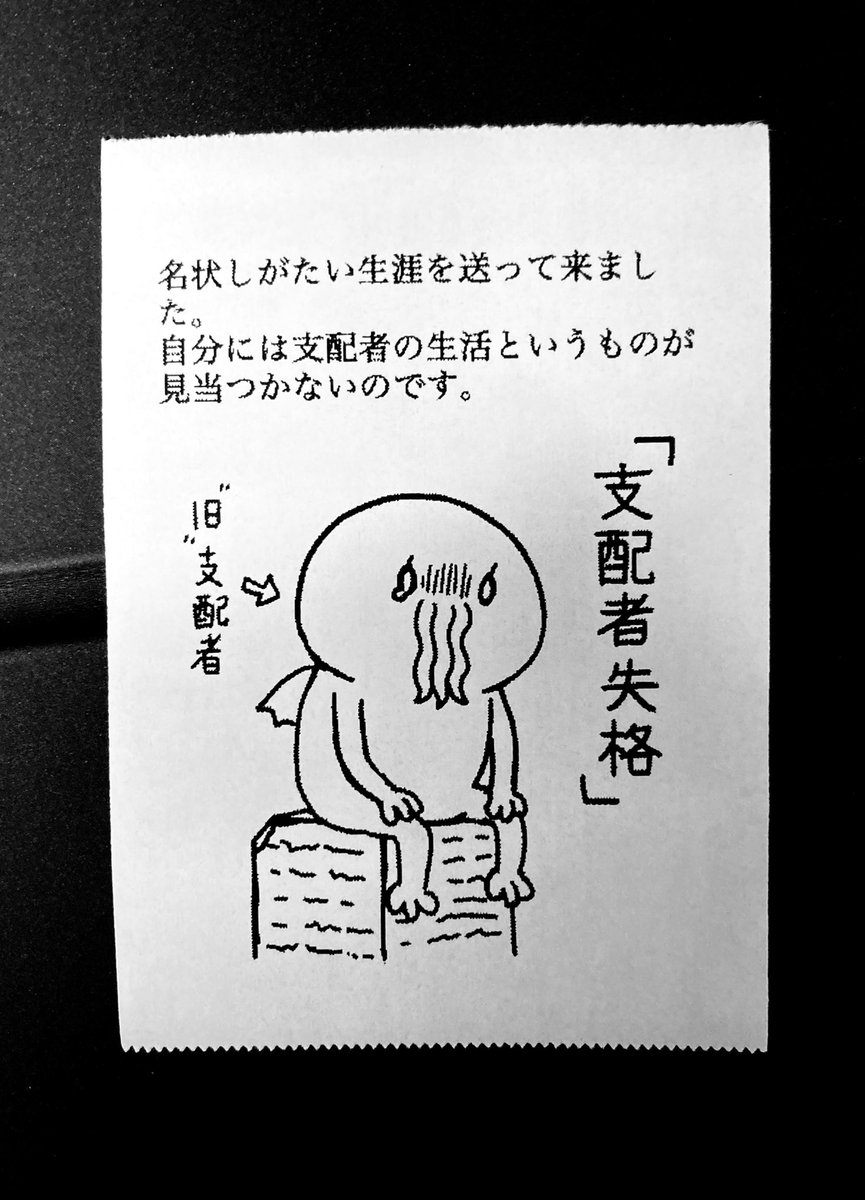 名状しがたい生涯を送って来まし
た。
自分には支配者の生活というものが
見当つかないのです。
「支配者失格」
"旧"支配者